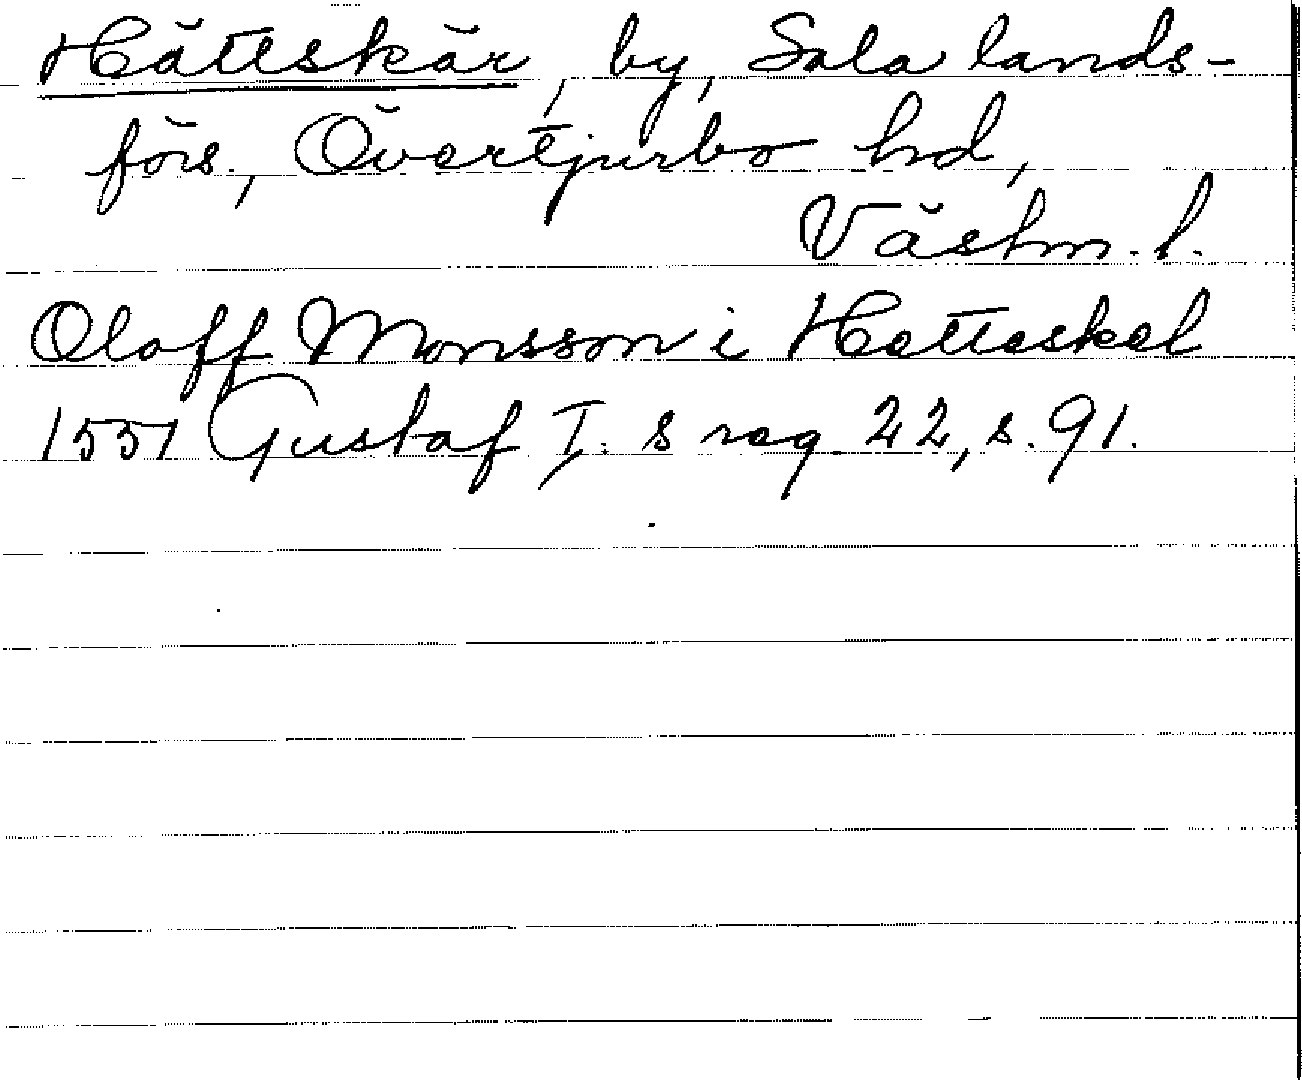 Hättskär, by, Sala lands-
förs., Övertjurbo hd,
Västm. l.
Oloff Monsson i Hetteskel
1551 Gustaf I: s reg. 22, s. 91.